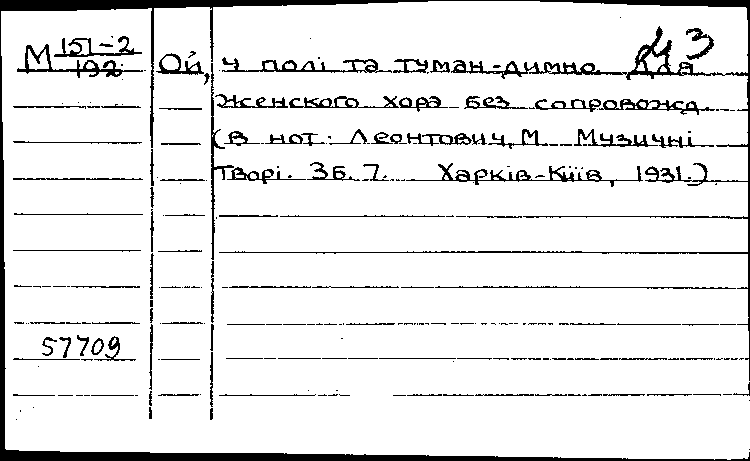 М 151-2
192
43
Ой, у полі та туман-димно. Для
женского хора без сопровожд.
(в нот.: Леонтович, М. Музичні
творі. Зб. 7. Харків-Київ, 1931.)
57709